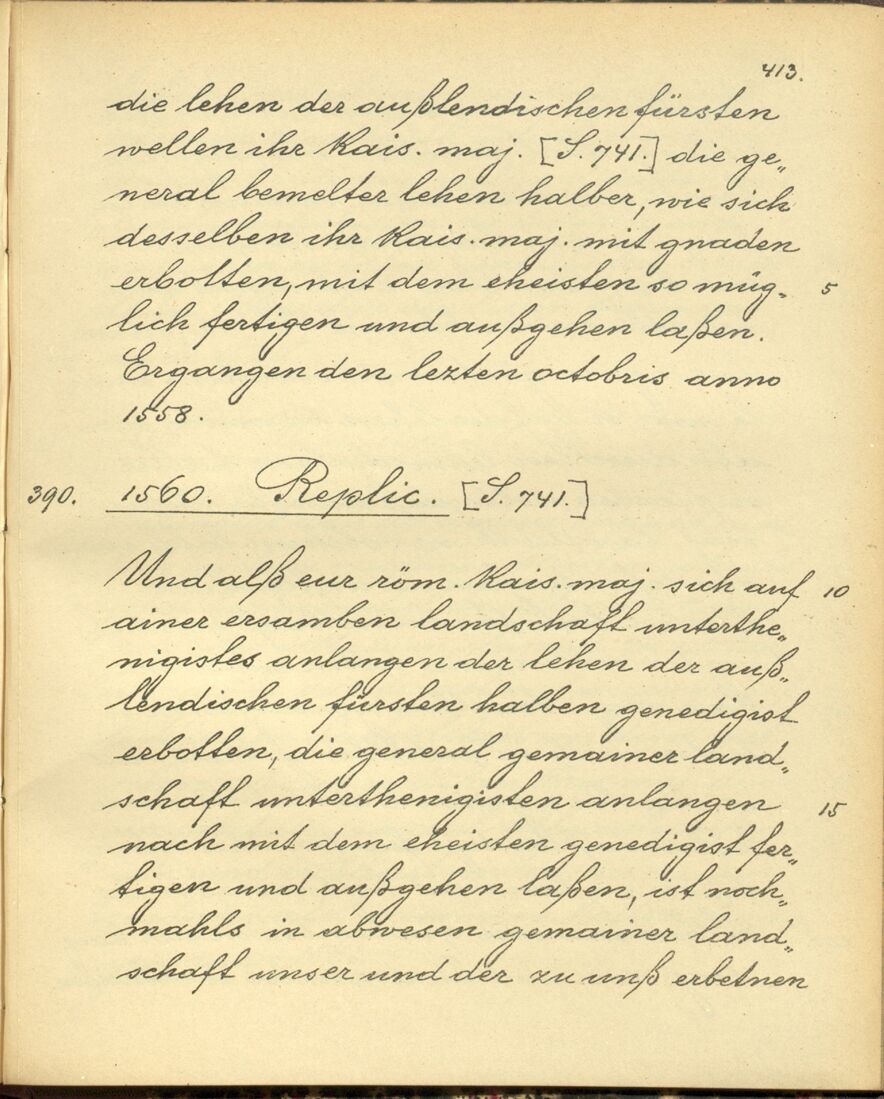 413.
die lehen der außlendischen fürsten
wellen ihr kais. maj. [S. 741.] die ge„
neral bemelter lehen halber, wie sich
desselben ihr kais. maj. mit gnaden
erbotten, mit dem eheisten so müg„ 5
lich fertigen und außgehen laßen.
Ergangen den lezten octobris anno
1558.
390. 1560. Replic. [S. 741.]
Und alß eur röm. kais. maj. sich auf 10
ainer ersamben landschaft unterthe„
nigistes anlangen der lehen der auß„
lendischen fürsten halben genedigist
erbotten, die general gemainer land„
schaft unterthenigisten anlangen 15
nach mit dem eheisten genedigist fer„
tigen und außgehen laßen, ist noch„
mahls in abwesen gemainer land„
schaft unser und der zu unß erbetnen